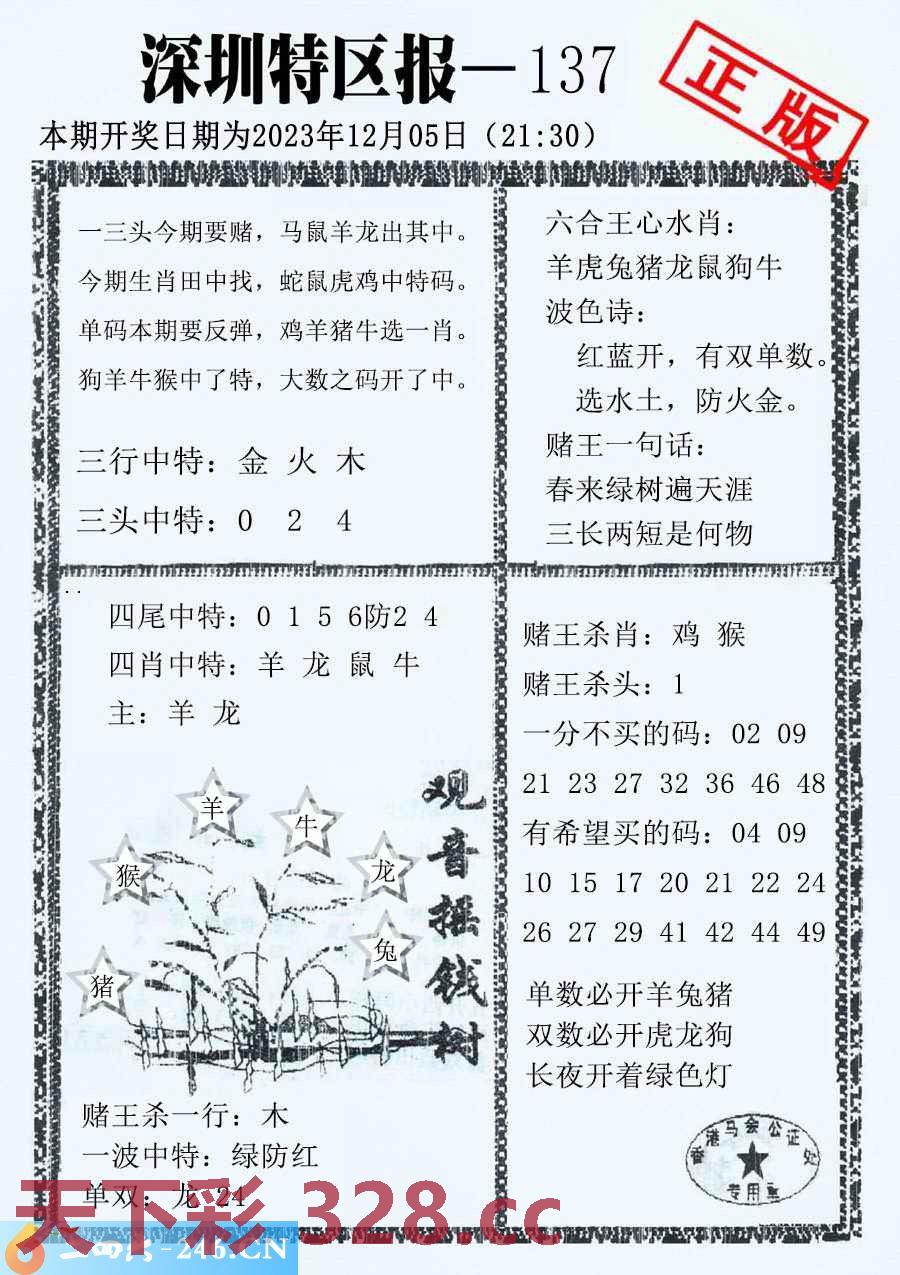 深圳特区报—137
正版
本期开奖日期为2023年12月05日（21:30）
一三头今期要赌，马鼠羊龙出其中。
今期生肖田中找，蛇鼠虎鸡中特码。
单码本期要反弹，鸡羊猪牛选一肖。
狗羊牛猴中了特，大数之码开了中。
三行中特：金 火 木
三头中特：0 2 4
六合王心水肖：
羊虎兔猪龙鼠狗牛
波色诗：
红蓝开，有双单数。
选水土，防火金。
赌王一句话：
春来绿树遍天涯
三长两短是何物
四尾中特：0 1 5 6防2 4
四肖中特：羊 龙 鼠 牛
主：羊 龙
羊
牛
猴
龙
兔
猪
观音摇钱树
赌王杀一行：木
一波中特：绿防红
单双：龙 24
赌王杀肖：鸡 猴
赌王杀头：1
一分不买的码：02 09
21 23 27 32 36 46 48
有希望买的码：04 09
10 15 17 20 21 22 24
26 27 29 41 42 44 49
单数必开羊兔猪
双数必开虎龙狗
长夜开着绿色灯
香港马会公证处
专用章
天下彩 328.cc
-246.CN